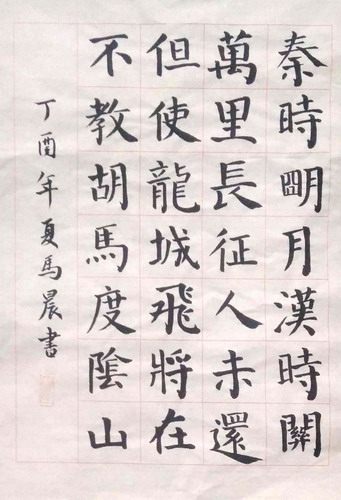 秦時明月漢時關
萬里長征人未還
但使龍城飛將在
不教胡馬度陰山
丁酉年夏馬晨書